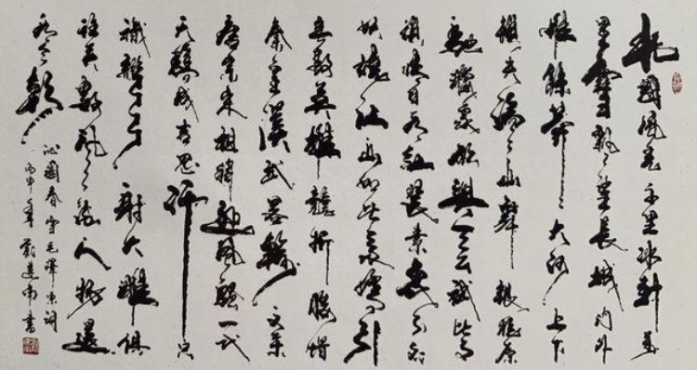 北國風光千里冰封萬
里雪飄望長城内外
惟餘莽莽大河上下
頓失滔滔山舞銀蛇原
馳蠟象欲與天公試比高
須晴日看紅裝素裹分外
妖嬈江山如此多嬌引
無數英雄競折腰惜
秦皇漢武略輸文采
唐宗宋祖稍遜風騷一代
天驕成吉思汗只
識彎弓射大雕俱
往矣數風流人物還
看今朝
沁園春雪毛澤東詞
丙申年